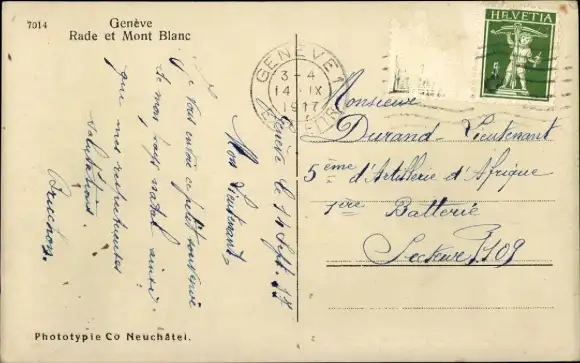 7014
Genève
Rade et Mont Blanc
Genève le 14 Sept. 17
Mon Lieutenant,
Je vous envoi ce petit souvenir
de mon pays natal ainsi
que mes respectueuses
salutations.
GENÈVE 1
3-4
14 IX
1917
HELVETIA
Monsieur
Durand-Lieutenant
5ème d'Artillerie d'Afrique
1ère Batterie
Secteur 109
Phototypie Co Neuchâtel.